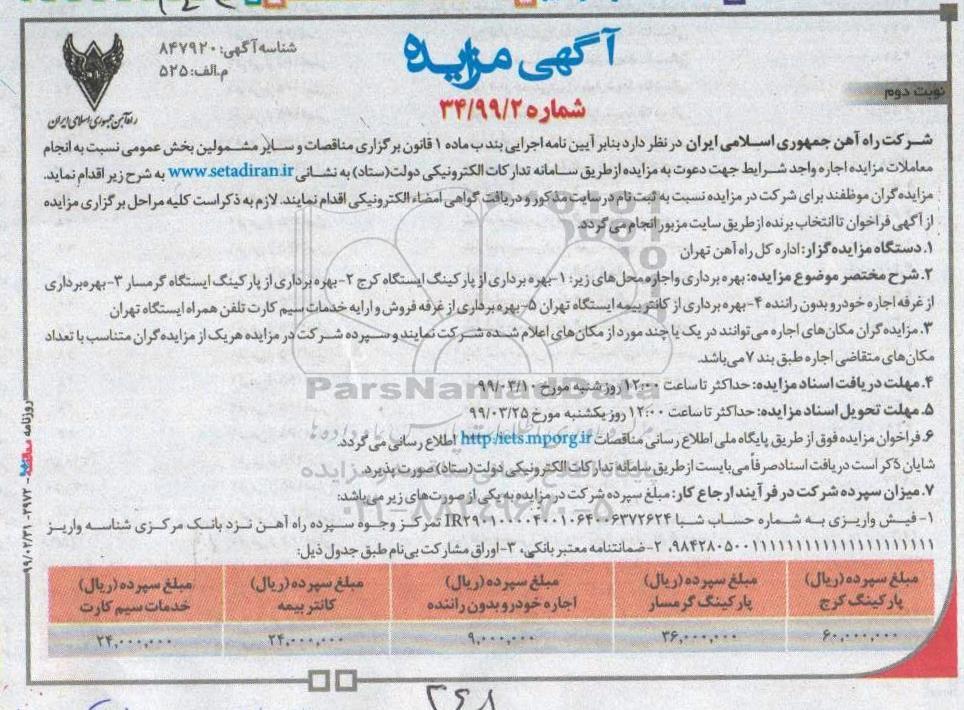 آگهی مزایده
شناسه آگهی: ۸۴۷۹۲۰
م.الف: ۵۲۵
راه‌آهن جمهوری اسلامی ایران
نوبت دوم
شماره ۳۴/۹۹/۲
شرکت راه آهن جمهوری اسلامی ایران در نظر دارد بنابر آیین نامه اجرایی بند ب ماده ۱ قانون برگزاری مناقصات و سایر مشمولین بخش عمومی نسبت به انجام
معاملات مزایده اجاره واجد شرایط جهت دعوت به مزایده از طریق سامانه تدارکات الکترونیکی دولت (ستاد) به نشانی www.setadiran.ir به شرح زیر اقدام نماید.
مزایده گران موظفند برای شرکت در مزایده نسبت به ثبت نام در سایت مذکور و دریافت گواهی امضاء الکترونیکی اقدام نمایند. لازم به ذکر است کلیه مراحل برگزاری مزایده
از آگهی فراخوان تا انتخاب برنده از طریق سایت مزبور انجام می گردد.
۱. دستگاه مزایده گزار: اداره کل راه آهن تهران
۲. شرح مختصر موضوع مزایده: بهره برداری و اجاره محل های زیر: ۱- بهره برداری از پارکینگ ایستگاه کرج ۲- بهره برداری از پارکینگ ایستگاه گرمسار ۳- بهره برداری
از غرفه اجاره خودرو بدون راننده ۴- بهره برداری از کانتر بیمه ایستگاه تهران ۵- بهره برداری از غرفه فروش و ارایه خدمات سیم کارت تلفن همراه ایستگاه تهران
۳. مزایده گران مکان های اجاره می توانند در یک یا چند مورد از مکان های اعلام شده شرکت نمایند و سپرده شرکت در مزایده هر یک از مزایده گران متناسب با تعداد
مکان های متقاضی اجاره طبق بند ۷ می باشد.
۴. مهلت دریافت اسناد مزایده: حداکثر تا ساعت ۱۲:۰۰ روز شنبه مورخ ۹۹/۰۳/۱۰
۵. مهلت تحویل اسناد مزایده: حداکثر تا ساعت ۱۲:۰۰ روز یکشنبه مورخ ۹۹/۰۳/۲۵
۶. فراخوان مزایده فوق از طریق پایگاه ملی اطلاع رسانی مناقصات http:/iets.mporg.ir اطلاع رسانی می گردد.
شایان ذکر است دریافت اسناد صرفاً می بایست از طریق سامانه تدارکات الکترونیکی دولت (ستاد) صورت پذیرد.
۷. میزان سپرده شرکت در فرآیند ارجاع کار: مبلغ سپرده شرکت در مزایده به یکی از صورت های زیر می باشد:
۱- فیش واریزی به شماره حساب شبا IR۲۹۰۱۰۰۰۰۴۰۰۱۰۶۴۰۰۶۳۷۲۶۲۴ تمرکز وجوه سپرده راه آهن نزد بانک مرکزی شناسه واریز
۹۸۴۲۸۰۵۰۰۱۱۱۱۱۱۱۱۱۱۱۱۱۱۱۱۱۱۱۱۱، ۲- ضمانتنامه معتبر بانکی، ۳- اوراق مشارکت بی نام طبق جدول ذیل:
مبلغ سپرده (ریال) پارکینگ کرج
مبلغ سپرده (ریال) پارکینگ گرمسار
مبلغ سپرده (ریال) اجاره خودرو بدون راننده
مبلغ سپرده (ریال) کانتر بیمه
مبلغ سپرده (ریال) خدمات سیم کارت
۶۰,۰۰۰,۰۰۰ ۳۶,۰۰۰,۰۰۰ ۹,۰۰۰,۰۰۰ ۲۴,۰۰۰,۰۰۰ ۲۴,۰۰۰,۰۰۰
ParsNamadData
۰۲۱-۸۸۳۴۹۶۷۰-۵
۹۹/۰۲/۳۱ - ۳۹۷۲ - روزنامه مناقصه
۳۶۸